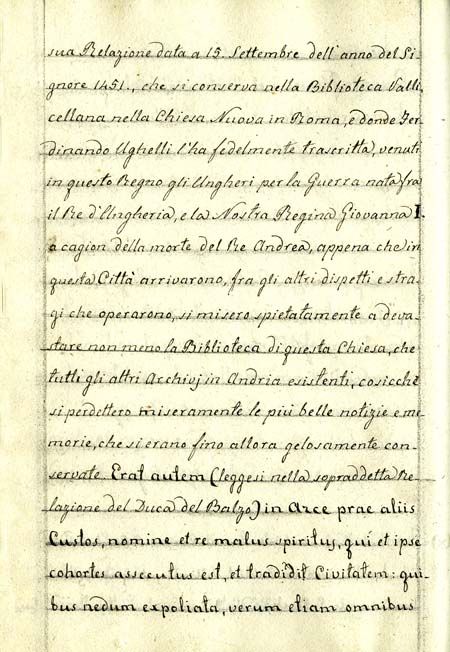 sua Relazione data a 15. Settembre dell'anno del Si-
gnore 1451., che si conserva nella Biblioteca Valli-
cellana nella Chiesa Nuova in Roma, e donde Fer-
dinando Ughelli l'ha fedelmente trascritta, venuti
in questo Regno gli Ungheri per la Guerra nata fra
il Re d'Ungheria, e la Nostra Regina Giovanna I.
a cagion della morte del Re Andrea, appena che in
questa Città arrivarono, fra gli altri dispetti e stra-
gi che operarono, si misero spietatamente a deva-
stare non meno la Biblioteca di questa Chiesa, che
tutti gli altri Archivj in Andria esistenti, cosicchè
si perdettero miseramente le più belle notizie e me-
morie, che si erano fino allora gelosamente con-
servate. Erat autem (leggesi nella sopraddetta Re-
lazione del Duca del Balzo) in Arce prae aliis
Custos, nomine et re malus spiritus, qui et ipse
cohortes assecutus est, et tradidit Civitatem: qui-
bus nedum expoliata, verum etiam omnibus